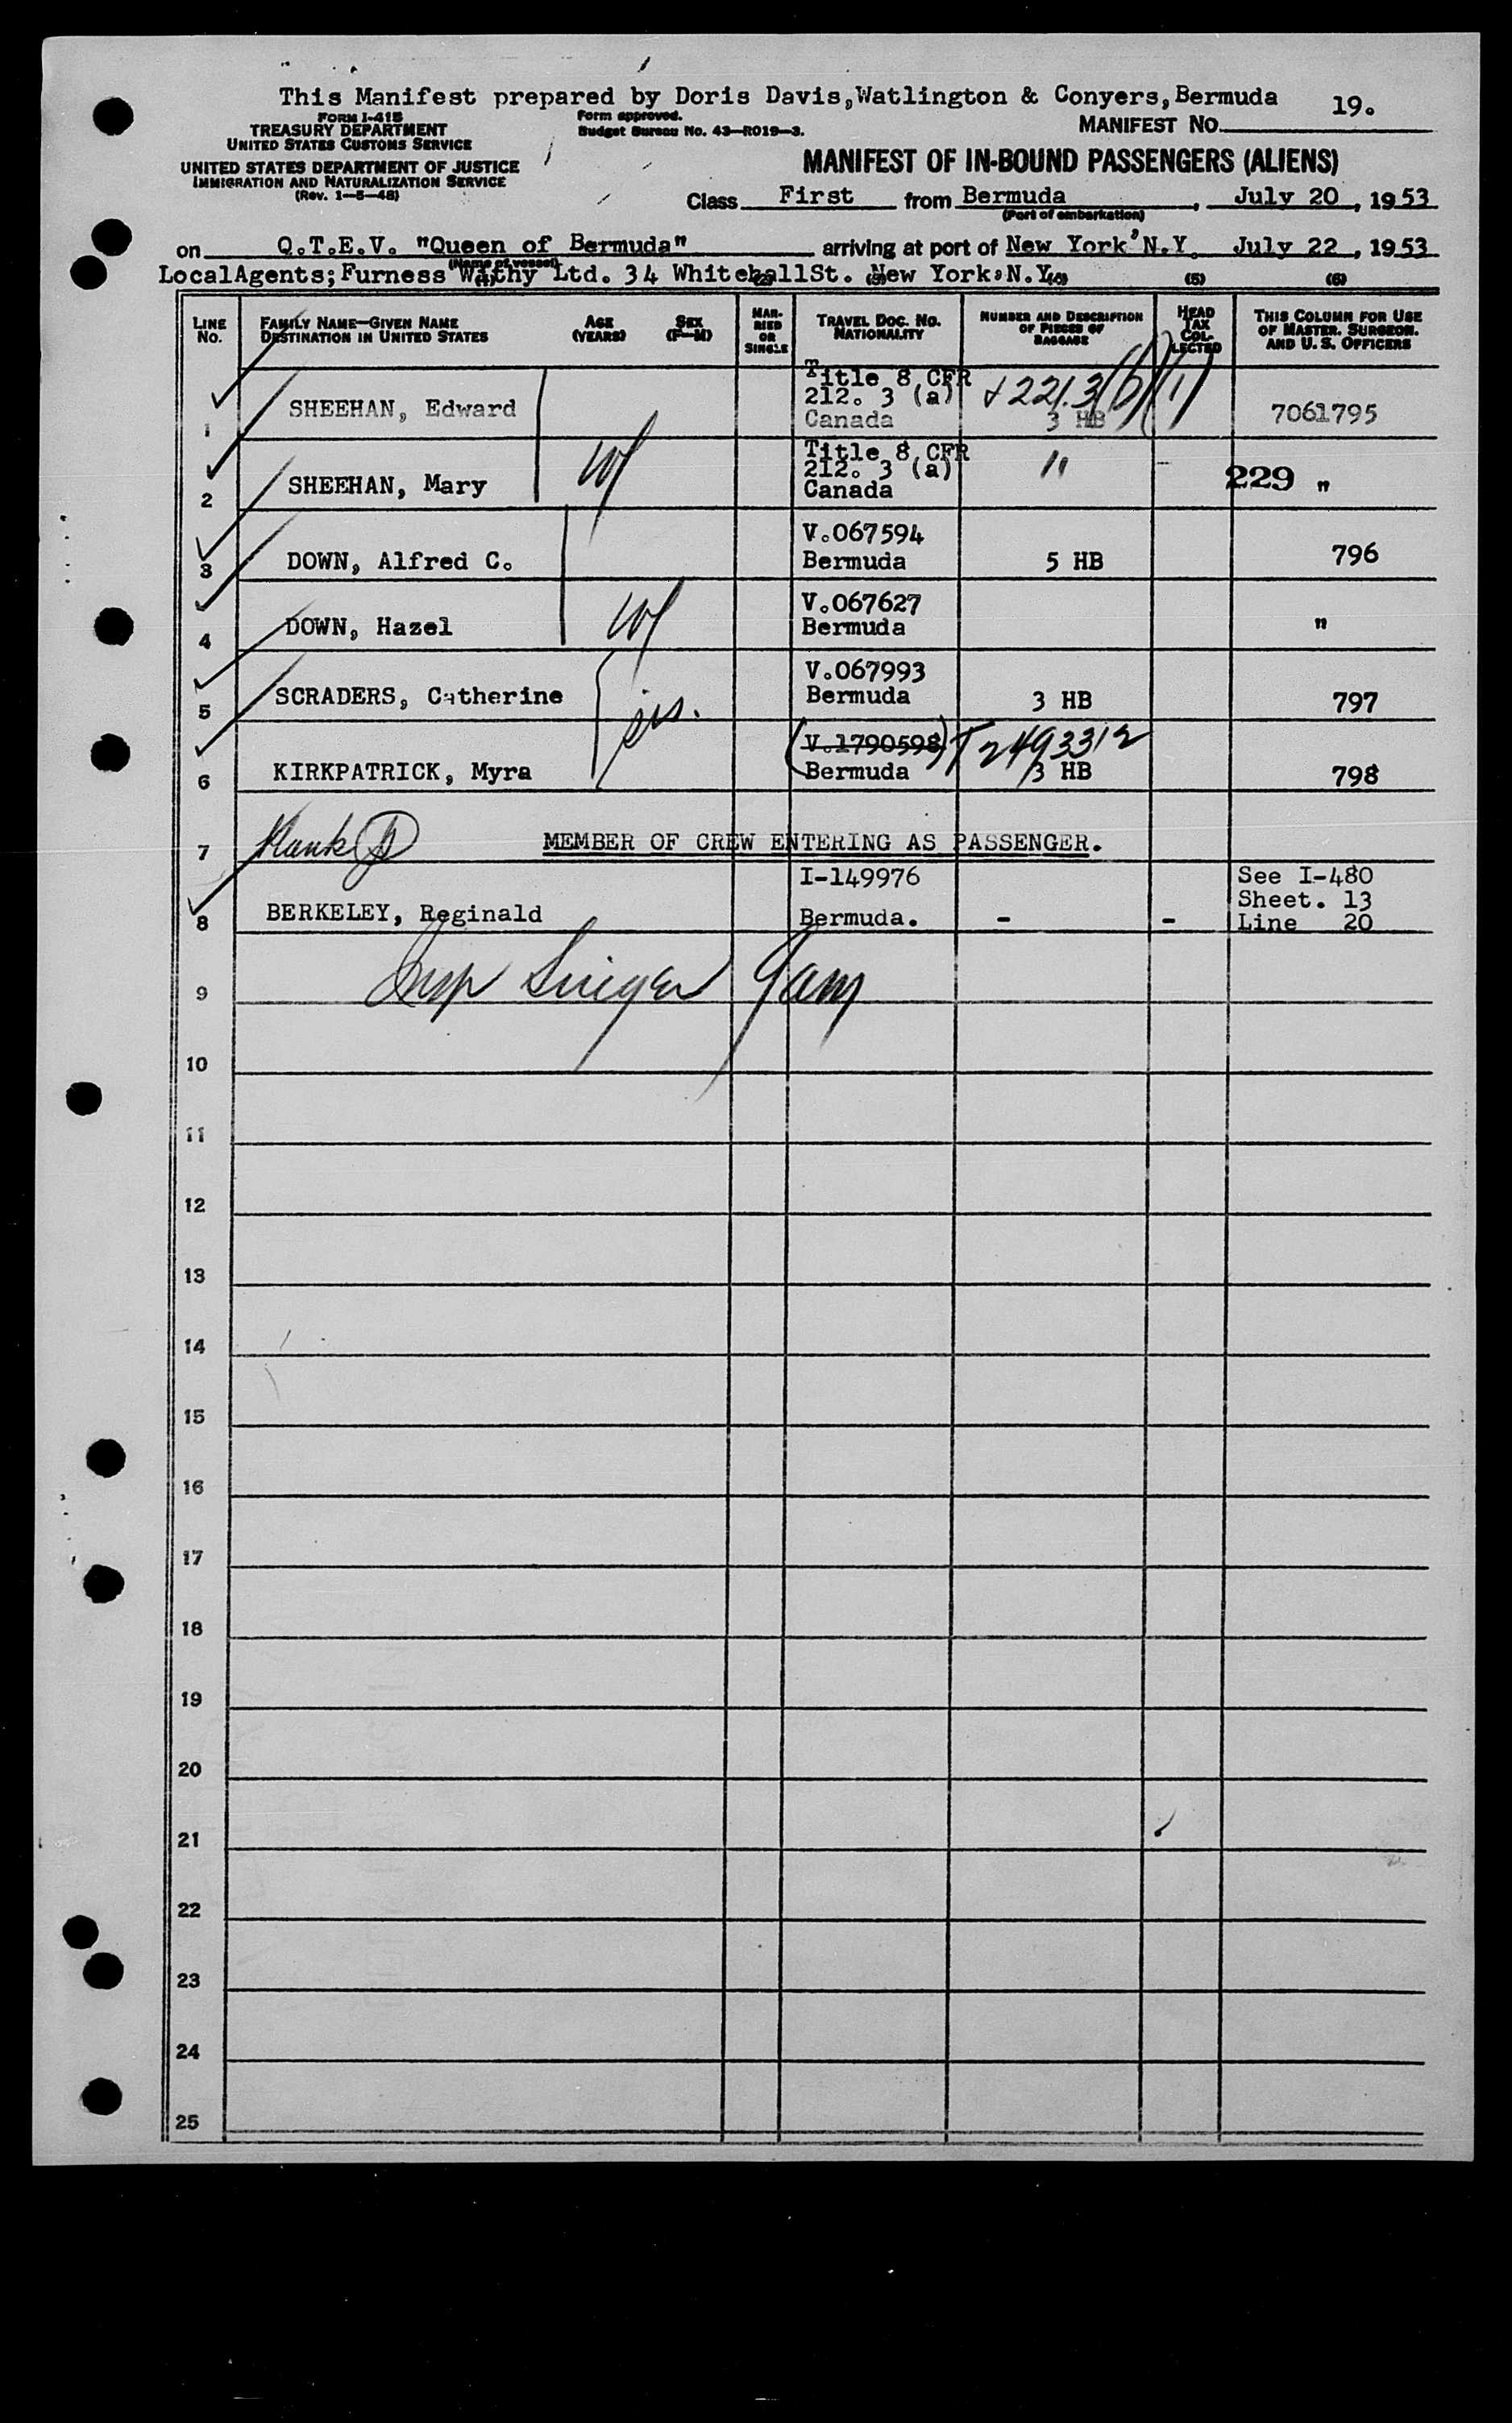 This Manifest prepared by Doris Davis,Watlington & Conyers,Bermuda
19.
FORM I-415
TREASURY DEPARTMENT
UNITED STATES CUSTOMS SERVICE
UNITED STATES DEPARTMENT OF JUSTICE
IMMIGRATION AND NATURALIZATION SERVICE
(Rev. 1-5-48)
Form approved.
Budget Bureau No. 43-R019-3.
MANIFEST NO.
MANIFEST OF IN-BOUND PASSENGERS (ALIENS)
Class First from Bermuda, July 20, 1953
(Port of embarkation)
on Q.T.E.V. "Queen of Bermuda" arriving at port of New York'N.Y. July 22, 1953
(Name of vessel)
LocalAgents;Furness Withy Ltd. 34 WhitehallSt. New York,N.Y.
(1) (2) (3) (4) (5) (6)
LINE No.
FAMILY NAME—GIVEN NAME
DESTINATION IN UNITED STATES
AGE (YEARS)
SEX (F-M)
MARRIED OR SINGLE
TRAVEL DOC. NO. NATIONALITY
NUMBER AND DESCRIPTION OF PIECES OF BAGGAGE
HEAD TAX COLLECTED
THIS COLUMN FOR USE OF MASTER, SURGEON, AND U. S. OFFICERS
1 SHEEHAN, Edward Title 8,CFR 212. 3 (a) Canada + 221.3(b)(1) 3 HB 7061795
2 SHEEHAN, Mary W Title 8,CFR 212. 3 (a) Canada " 229 "
3 DOWN, Alfred C. V.067594 Bermuda 5 HB 796
4 DOWN, Hazel W V.067627 Bermuda "
5 SCRADERS, Catherine sis. V.067993 Bermuda 3 HB 797
6 KIRKPATRICK, Myra (V.1790598) T2493312 Bermuda 3 HB 798
7 MEMBER OF CREW ENTERING AS PASSENGER.
8 BERKELEY, Reginald I-149976 Bermuda. - - See I-480 Sheet. 13 Line 20
9 Insp Singer
10
11
12
13
14
15
16
17
18
19
20
21
22
23
24
25